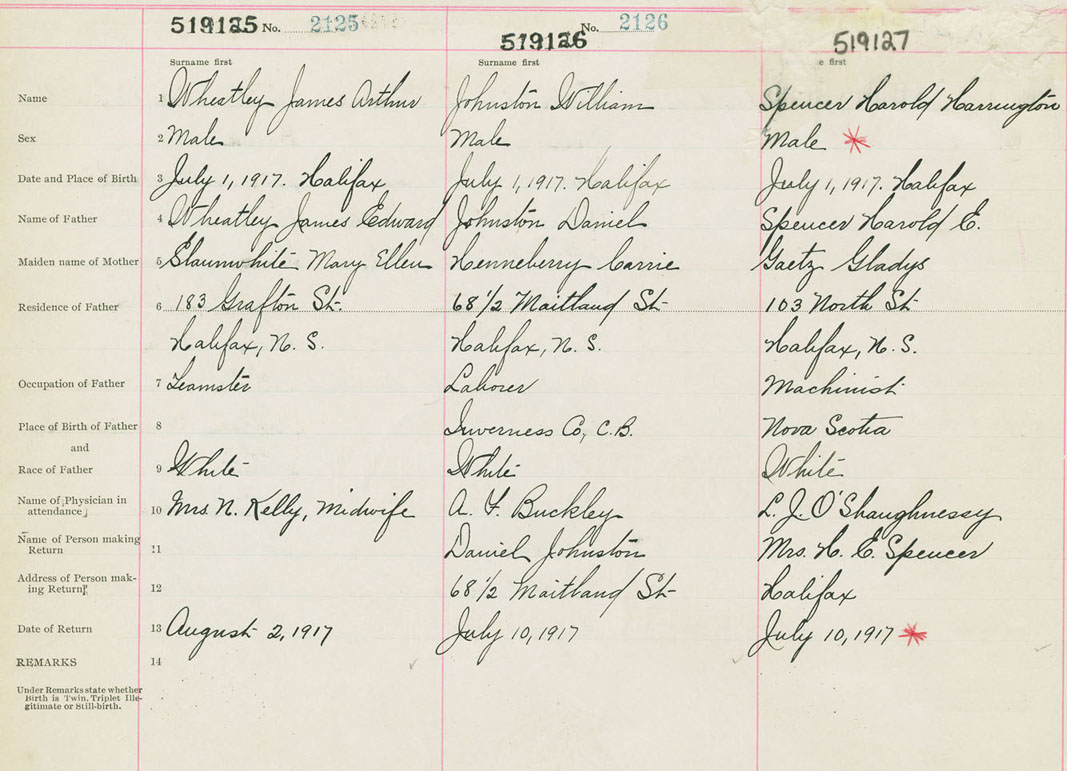 519125 No. 2125 519126 No. 2126 519127
Surname first Surname first e first
Name 1 Wheatley James Arthur Johnston William Spencer Harold Harrington
Sex 2 Male Male Male
Date and Place of Birth 3 July 1, 1917. Halifax July 1, 1917. Halifax July 1, 1917. Halifax
Name of Father 4 Wheatley James Edward Johnston Daniel Spencer Harold E.
Maiden name of Mother 5 Slaunwhite Mary Ellen Henneberry Carrie Gaetz Gladys
Residence of Father 6 183 Grafton St. 68 1/2 Maitland St 103 North St
Halifax, N. S. Halifax, N. S. Halifax, N. S.
Occupation of Father 7 Teamster Laborer Machinist
Place of Birth of Father 8 Inverness Co, C.B. Nova Scotia
and
Race of Father 9 White White White
Name of Physician in
attendance 10 Mrs. N. Kelly, Midwife A. F. Buckley L. J. O'Shaughnessy
Name of Person making
Return 11 Daniel Johnston Mrs. H. E. Spencer
Address of Person mak-
ing Return 12 68 1/2 Maitland St Halifax
Date of Return 13 August 2, 1917 July 10, 1917 July 10, 1917
REMARKS 14
Under Remarks state whether
Birth is Twin, Triplet Ille-
gitimate or Still-birth.